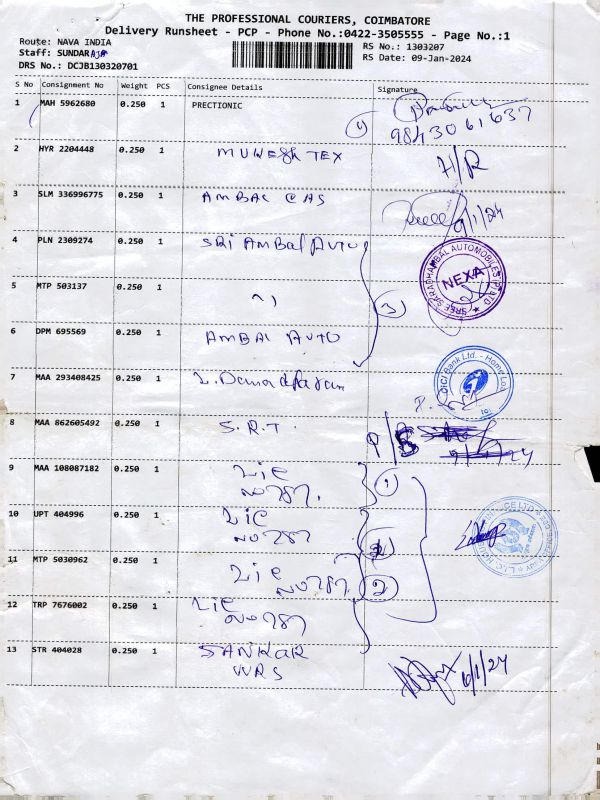 THE PROFESSIONAL COURIERS, COIMBATORE
Delivery Runsheet - PCP - Phone No.:0422-3505555 - Page No.:1
Route: NAVA INDIA
RS No.: 1303207
Staff: SUNDARAJA
RS Date: 09-Jan-2024
DRS No.: DCJB130320701
S No Consignment No Weight PCS Consignee Details Signature
1 MAH 5962680 0.250 1 PRECTIONIC
9843061637
2 HYR 2204448 0.250 1 MUKESH TEX H/R
3 SLM 336996775 0.250 1 AMBAL GAS
9/1/24
4 PLN 2309274 0.250 1 SRI AMBAL AUTO
SREE SARADHAMBAL AUTOMOBILES (P) LTD
NEXA
5 MTP 503137 0.250 1 "
3
6 DPM 695569 0.250 1 AMBAL AUTO
7 MAA 293408425 0.250 1
ICICI Bank Ltd. - Home Loa
8 MAA 862605492 0.250 1 S.R.T.
9 MAA 108087182 0.250 1 LIC
1
10 UPT 404996 0.250 1 LIC
11 MTP 5030962 0.250 1 LIC
2
12 TRP 7676002 0.250 1 LIC
13 STR 404028 0.250 1 SANKAR
WRS